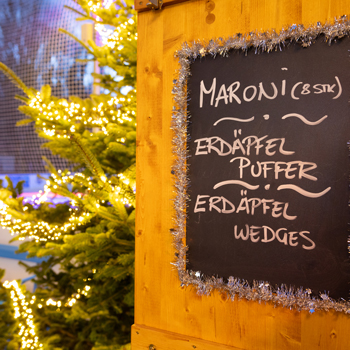 MARONI (8 STK)
ERDÄPFEL
PUFFER
ERDÄPFEL
WEDGES